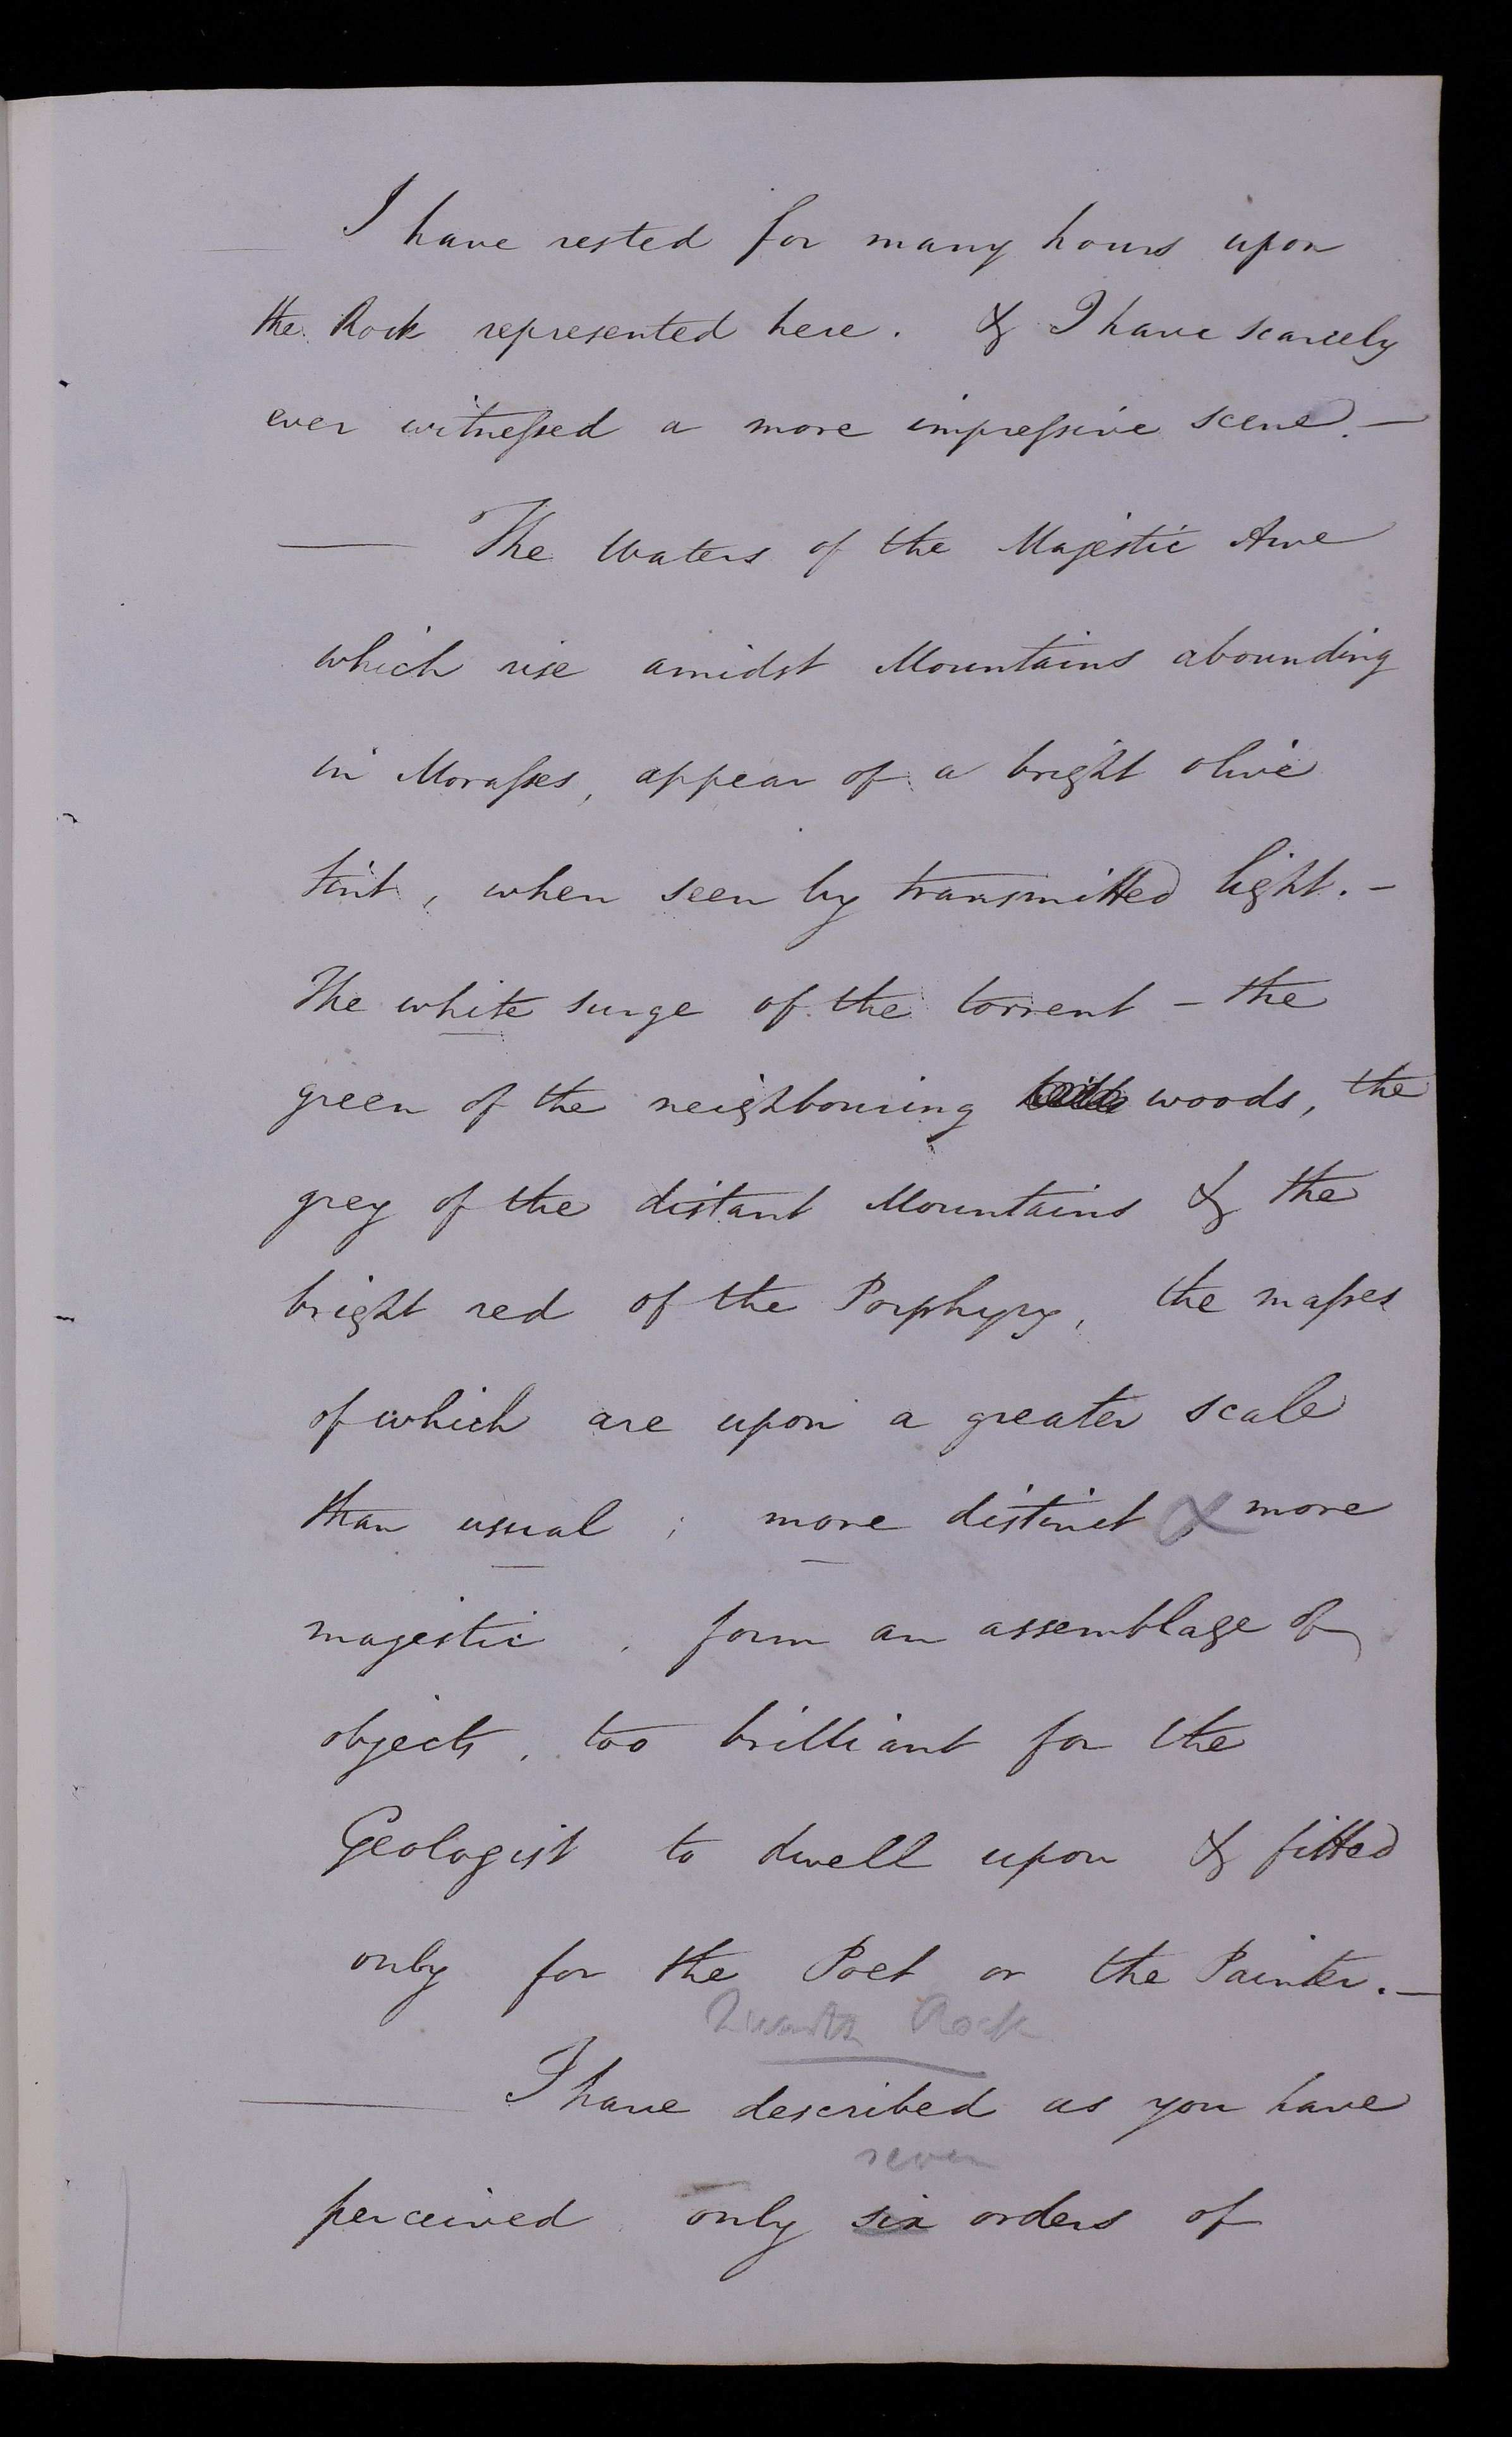 I have rested for many hours upon
the Rock represented here. & I have scarcely
ever witnessed a more impressive scene. –
— The Waters of the Majestic Awe
which rise amidst Mountains abounding
in Morasses, appear of a bright olive
tint, when seen by transmitted light. –
The white surge of the torrent – the
green of the neighbouring woods, the
grey of the distant Mountains & the
bright red of the Porphyry, the masses
of which are upon a greater scale
than usual; more distinct & more
majestic, form an assemblage of
objects, too brilliant for the
Geologist to dwell upon & fitted
only for the Poet or the Painter. –
Quartz Rock
— I have described as you have
seven
perceived only six orders of